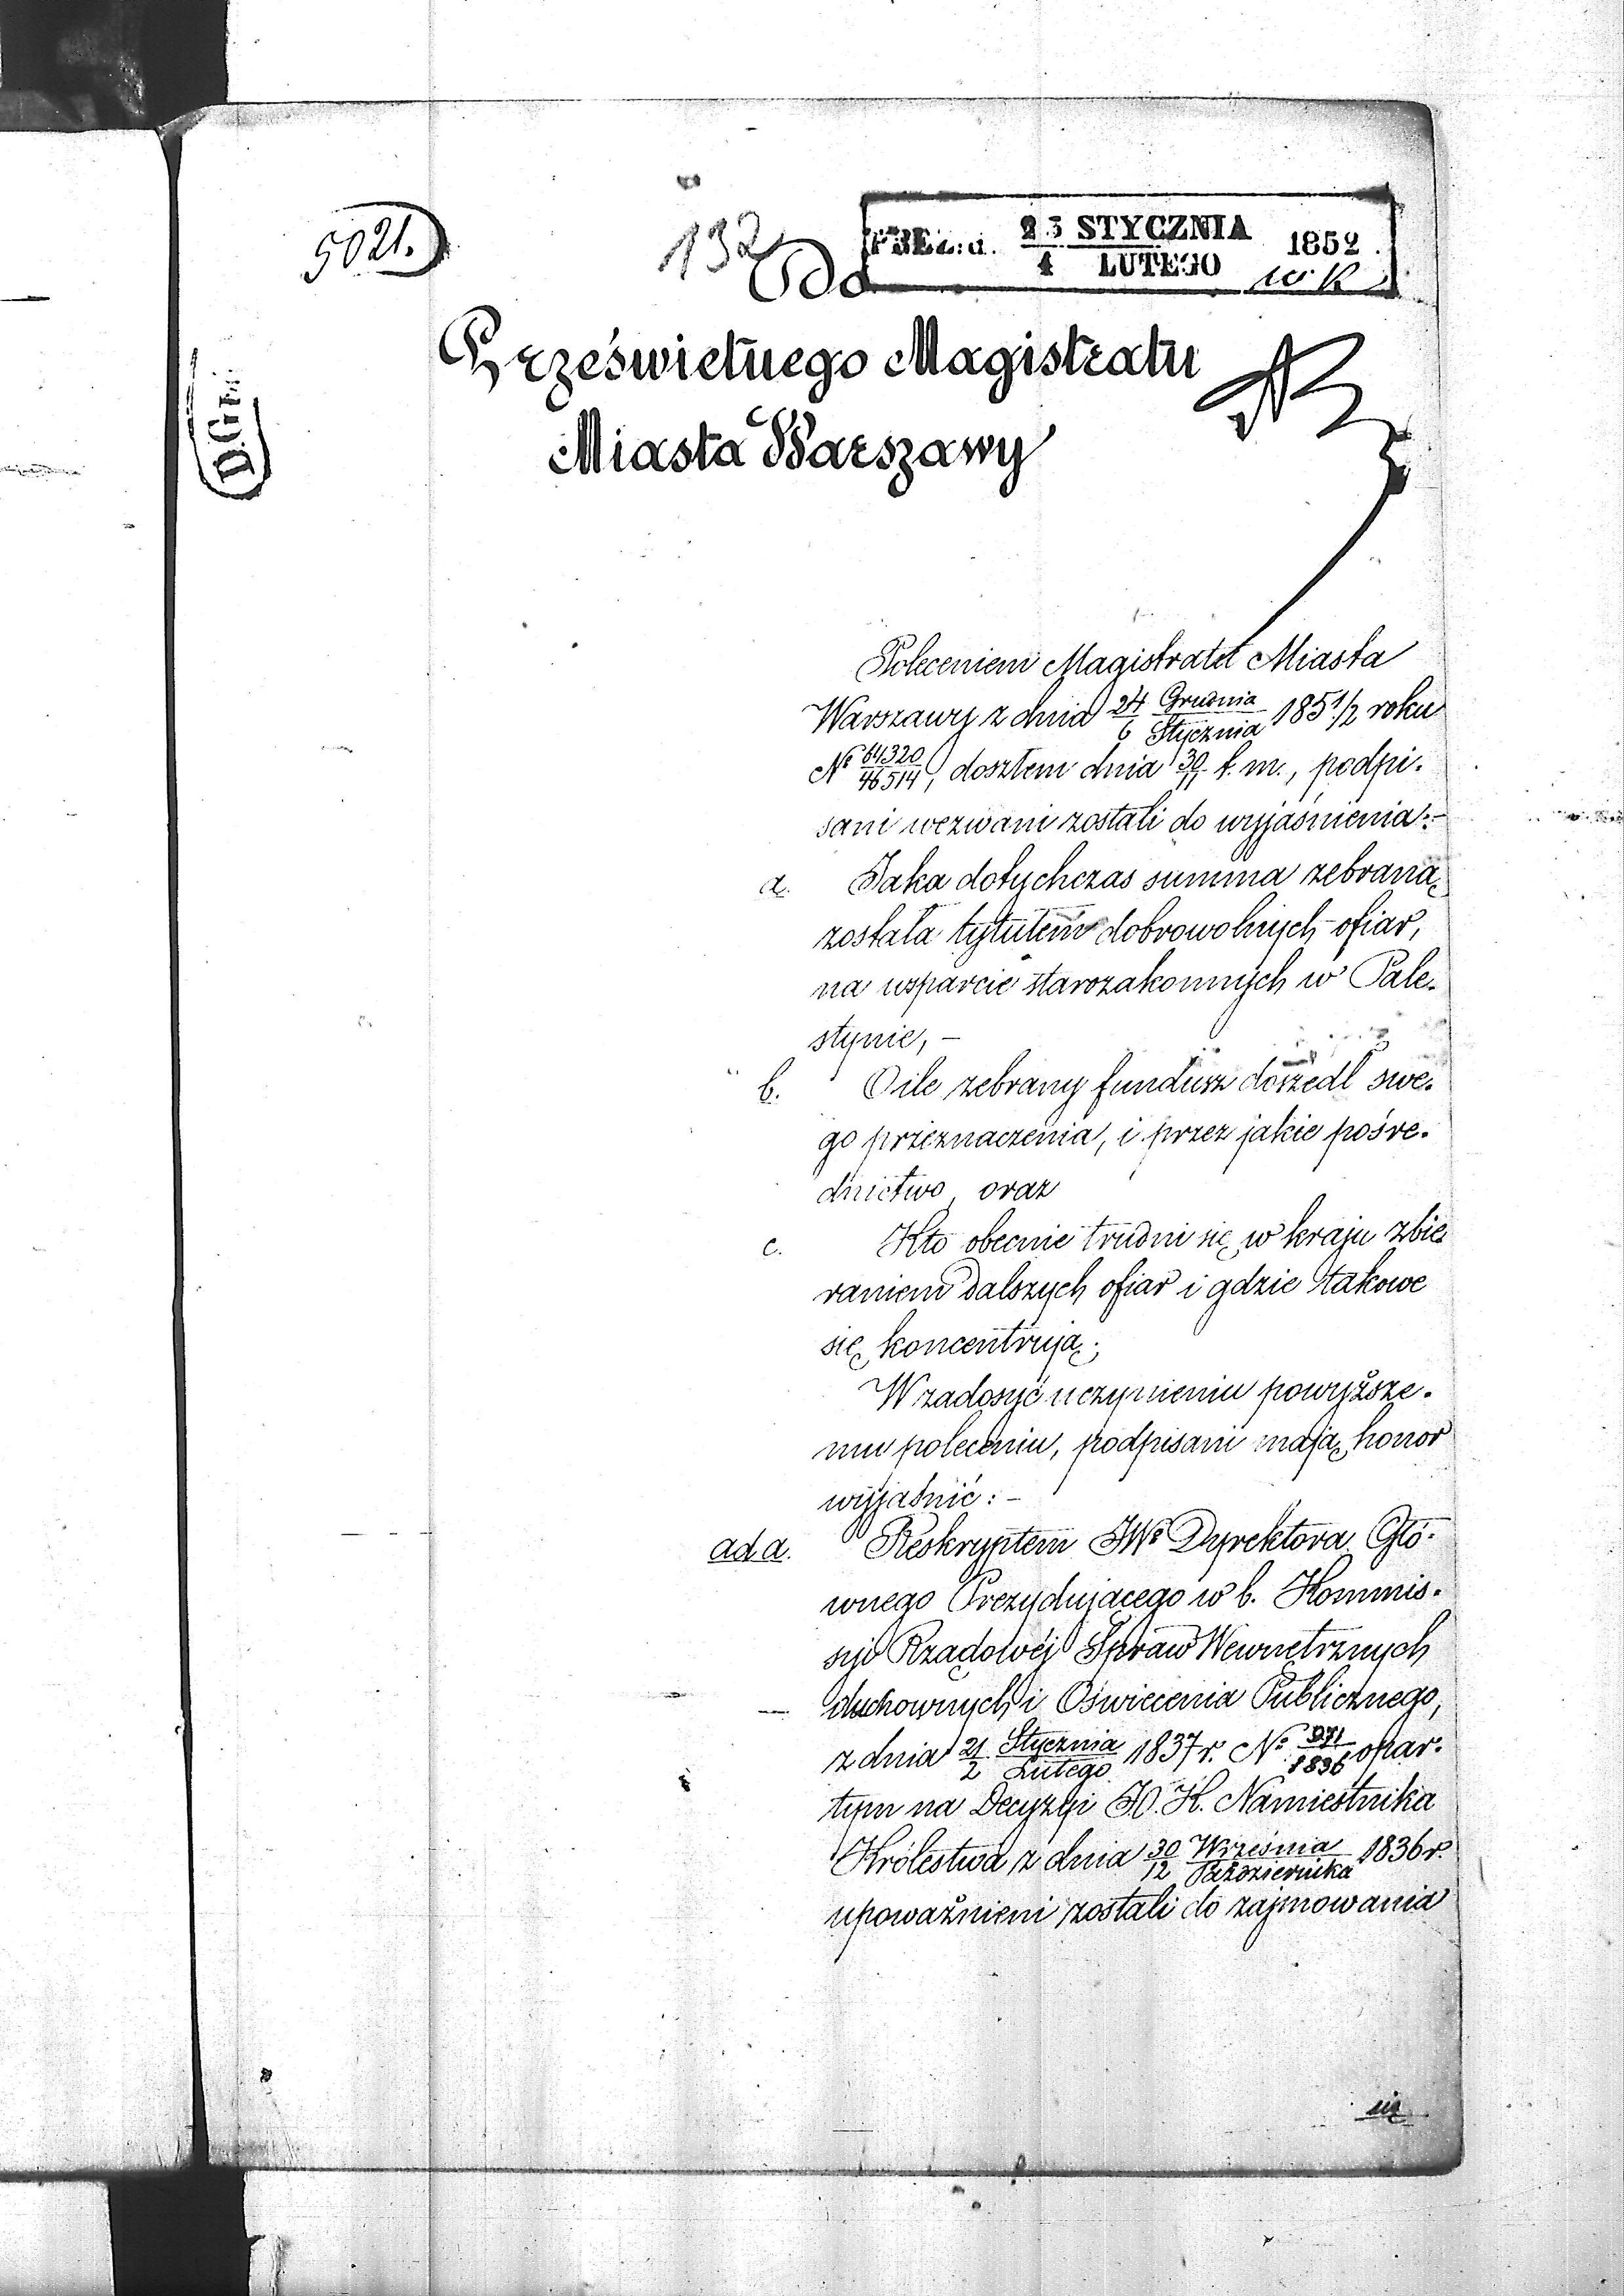 5021.
132
PREZ: d. 23 STYCZNIA / 4 LUTEGO 1852.
w k
D.Gł
Do
Prześwietnego Magistratu
Miasta Warszawy
Poleceniem Magistratu Miasta
Warszawy z dnia 24 Grudnia / 6 Stycznia 185 1/2 roku
Nº 64320/46514, doszłem dnia 30/11 t. m., podpi-
sani wezwani zostali do wyjaśnienia:-
a. Jaka dotychczas summa zebraną
została tytułem dobrowolnych ofiar,
na wsparcie starozakonnych w Pale-
stynie, -
b. O ile zebrany fundusz doszedł swe-
go przeznaczenia, i przez jakie pośre-
dnictwo, oraz
c. Kto obecnie trudni się w kraju zbie-
raniem dalszych ofiar i gdzie takowe
się koncentrują;
W zadosyć uczynieniu powyższe-
mu poleceniu, podpisani mają honor
wyjaśnić: -
ad a. Reskryptem JWº Dyrektora Głó-
wnego Prezydującego w b. Kommis-
syi Rządowéj Spraw Wewnętrznych
duchownych i Oświecenia Publicznego,
z dnia 21 Stycznia / 2 Lutego 1837 r. Nº 971/1836 opar-
tym na Decyzyi JO. X. Namiestnika
Królestwa z dnia 30 Września / 12 Października 1836 r.
upoważnieni zostali do zajmowania
się